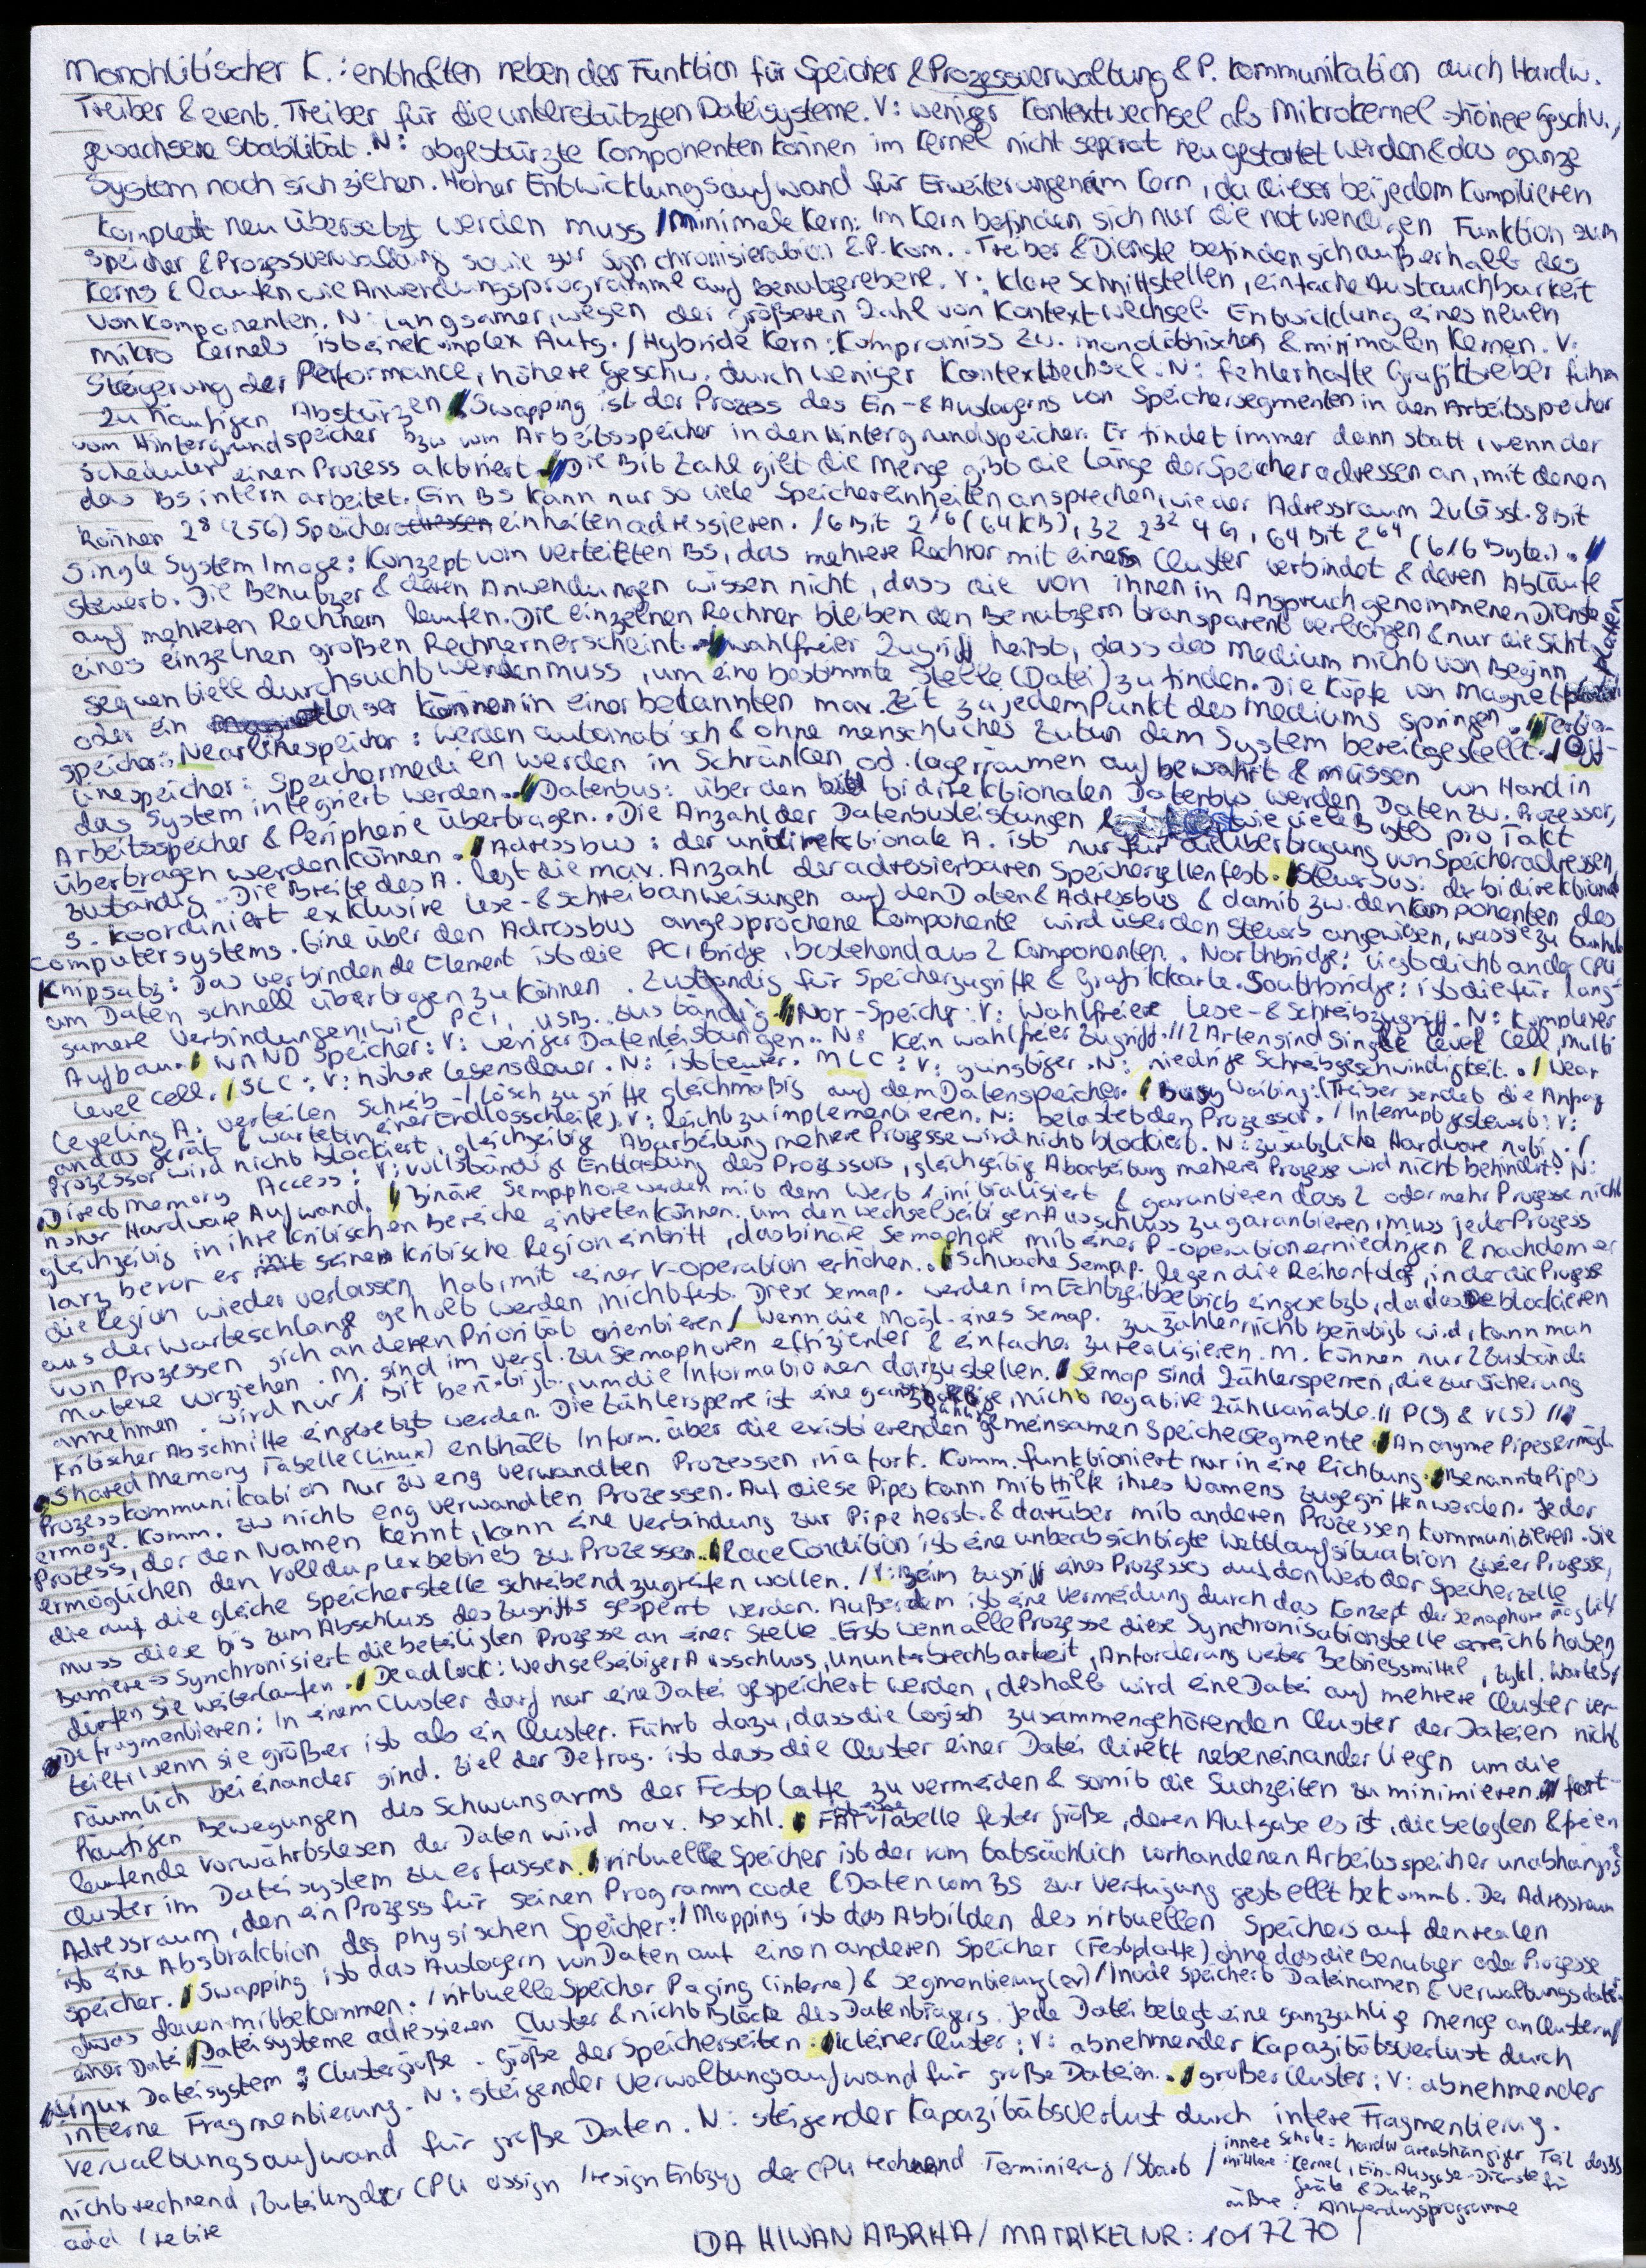 Monohlitischer K.: enthalten neben der Funktion für Speicher & Prozessverwaltung & P. Kommunikation auch Hardw.
Treiber & event. Treiber für die unterstützten Dateisysteme. V: weniger Kontextwechsel als Mikrokernel höhere Geschw.,
gewachsene Stabilität. N: abgestürzte Componenten können im Kernel nicht separat neu gestartet werden & das ganze
System nach sich ziehen. Hoher Entwicklungsaufwand für Erweiterungen am Kern, da dieser bei jedem Kompilieren
komplett neu übersetzt werden muss / Minimale Kern: Im Kern befinden sich nur die notwendigen Funktion zum
Speicher & Prozessverwaltung sowie zur Synchronisieration & P. Kom. . Treiber & Dienste befinden sich außerhalb des
Kerns & laufen wie Anwendungsprogramme auf Benutzerebene. V: klare Schnittstellen, einfache Austauchbarkeit
von Komponenten. N: langsamer, wegen der größeren Zahl von Kontextwechsel. Entwicklung eines neuen
mikro Kernels ist eine komplex Aufg. / Hybride Kern: Kompromiss zw. monolithischen & minimalen Kernen. V:
Steigerung der Performance, höhere Geschw. durch weniger Kontextwechsel. N: fehlerhafte Grafiktreiber führen
zu häufigen Abstürzen // Swapping ist der Prozess des Ein- & Auslagerns von Speichersegmenten in den Arbeitsspeicher
vom Hintergrundspeicher bzw vom Arbeitsspeicher in den Hintergrundspeicher. Er findet immer dann statt, wenn der
Scheduler einen Prozess aktiviert // Die Bit Zahl gibt die Menge gibt die Länge der Speicheradressen an, mit denen
das BS intern arbeitet. Ein BS kann nur so viele Speichereinheiten ansprechen, wie der Adressraum zulässt. 8 Bit
können 2^8 (256) Speichereinheiten adressieren. 16 Bit 2^16 (64 KB), 32 2^32 4 G, 64 Bit 2^64 (616 Byte.). //
Single System Image: Konzept vom verteilten BS, das mehrere Rechner mit einem Cluster verbindet & deren Abläufe
steuert. Die Benutzer & deren Anwendungen wissen nicht, dass die von ihnen in Anspruch genommenen Dienste
auf mehreren Rechnern laufen. Die einzelnen Rechner bleiben den Benutzern transparent verborgen & nur die Sicht
eines einzelnen großen Rechnern erscheint. // Wahlfreier Zugriff heißt, dass das Medium nicht von Beginn
sequentiell durchsucht werden muss, um eine bestimmte Stelle (Datei) zu finden. Die Köpfe von Magnetplatten
oder ein Laser können in einer bekannten max. Zeit zu jedem Punkt des Mediums springen. // Tertiär-
speicher: Nearlinespeicher: werden automatisch & ohne menschliches Zutun dem System bereitgestellt. / Off-
linespeicher: Speichermedien werden in Schränken od. Lagerräumen aufbewahrt & müssen von Hand in
das System integriert werden. // Datenbus: über den bidirektionalen Datenbus werden Daten zw. Prozessor,
Arbeitsspeicher & Peripherie übertragen. Die Anzahl der Datenbusleistungen wie viele Bytes pro Takt
übertragen werden können. / Adressbus: der unidirektionale A. ist nur für die Übertragung von Speicheradressen
zuständig. Die Breite des A. legt die max. Anzahl der adressierbaren Speicherzellen fest. / Steuerbus: der bidirektional
S. koordiniert exklusive Lese- & Schreibanweisungen auf den Daten & Adressbus & damit zw. den Komponenten des
Computersystems. Eine über den Adressbus angesprochene Komponente wird über den Steuerb. angewiesen, was sie zu tun hab
Chipsatz: Das verbindende Element ist die PCI Bridge, bestehend aus 2 Componenten. Northbridge: liegt dicht an der CPU
um Daten schnell übertragen zu können. Zuständig für Speicherzugriffe & Grafikkarte. Southbridge: ist die für lang-
samere Verbindungen, wie PCI, USB.. zuständig // Nor-Speicher: V: Wahlfreiere Lese- & Schreibzugriff. N: Komplexer
Aufbau. / NAND Speicher: V: weniger Datenleistungen.. N: kein wahlfreier Zugriff. // 2 Arten sind Single Level Cell, Multi
Level Cell. / SLC: V: höhere Lebensdauer. N: ist teuer. MLC: V: günstiger. N: niedrige Schreibgeschwindigkeit. / Wear
Leveling A. verteilen Schreib-/Lösch zugriffe gleichmäßig auf dem Datenspeicher. / Busy Waiting: (Treiber sendet die Anfrag
an das Gerät & wartet in einer Endlosschleife). V: leicht zu implementieren. N: belastet den Prozessor. / Interruptgesteuert: V:
Prozessor wird nicht blockiert, gleichzeitige Abarbeitung mehrere Prozesse wird nicht blockiert. N: zusätzliche Hardware nötig. /
Direct Memory Access: V: vollständige Entlastung des Prozessors, gleichzeitig Abarbeitung mehrer Prozesse wird nicht behindert. N:
hoher Hardware Aufwand. // Binäre Semaphore werden mit dem Wert 1 initialisiert & garantieren dass 2 oder mehr Prozesse nicht
gleichzeitig in ihre kritischen Bereiche eintreten können. Um den wechselseitigen Ausschluss zu garantieren, muss jede Prozess
kurz bevor er seinen kritische Region eintritt, das binäre Semaphore mit einer P-operation erniedrigen & nachdem er
die Region wieder verlassen hat, mit einer V-operation erhöhen. / Schwache Semap. legen die Reihenfolge, in der die Prozesse
aus der Warteschlange geholt werden, nicht fest. Diese Semap. werden im Echtzeitbetrieb eingesetzt, da das Deblockieren
von Prozessen sich an deren Priorität orientieren / Wenn die Mögl. eines Semap. zu zählen nicht benötigt wird, kann man
Mutexe vorziehen. M. sind im vergl. zu Semaphoren effizienter & einfacher zu realisieren. M. können nur 2 Zustände
annehmen. Wird nur 1 Bit benötigt, um die Informationen darzustellen. / Semap sind Zählersperren, die zur Sicherung
kritischer Abschnitte eingesetzt werden. Die Zählersperre ist eine ganzzahlige, nicht negative Zählvariable. // P(S) & V(S) //
Shared Memory Tabelle (Linux) enthält Inform. über die existierenden gemeinsamen Speichersegmente / Anonyme Pipes ermögl.
Prozesskommunikation nur zw eng verwandten Prozessen via fork. Komm. funktioniert nur in eine Richtung. / Benannte Pipes
ermögl. Komm. zw nicht eng verwandten Prozessen. Auf diese Pipes kann mithilfe ihres Namens zugegriffen werden. Jeder
Prozess, der den Namen kennt, kann eine Verbindung zur Pipe herst. & darüber mit anderen Prozessen kommunizieren. Sie
ermöglichen den Vollduplexbetrieb zw. Prozessen. / Race Condition ist eine unbeabsichtigte Wettlaufsituation zweier Prozesse,
die auf die gleiche Speicherstelle schreibend zugreifen wollen. / V: Beim Zugriff eines Prozesses auf den Wert der Speicherzelle
muss diese bis zum Abschluss des Zugriffs gesperrt werden. Außerdem ist eine Vermeidung durch das Konzept der Semaphore möglich
Barriere => Synchronisiert die beteiligten Prozesse an einer Stelle. Erst wenn alle Prozesse diese Synchronisationstelle erreicht haben
dürfen sie weiterlaufen. / Deadlock: Wechselseitiger Ausschluss, Ununterbrechbarkeit, Anforderung weiter Betriebsmittel, zykl. Wartebez
Defragmentieren: In einem Cluster darf nur eine Datei gespeichert werden, deshalb wird eine Datei auf mehrere Cluster ver-
teilt, wenn sie größer ist als ein Cluster. Führt dazu, dass die logisch zusammengehörenden Cluster der Dateien nicht
räumlich beieinander sind. Ziel der Defrag. ist dass die Cluster einer Datei direkt nebeneinander liegen um die
häufigen Bewegungen des Schwungarms der Festplatte zu vermeiden & somit die Suchzeiten zu minimieren. // fort-
laufende Vorwährtslesen der Daten wird max. beschl. / FAT ist eine Tabelle fester größe, deren Aufgabe es ist, die belegten & freien
Cluster im Dateisystem zu erfassen. / virtuelle Speicher ist der vom tatsächlich vorhandenen Arbeitsspeicher unabhängig
Adressraum, den ein Prozess für seinen Programmcode & Daten vom BS zur Verfügung gestellt bekommt. Der Adressraum
ist eine Abstraktion des physischen Speicher. / Mapping ist das Abbilden des virtuellen Speichers auf den realen
Speicher. / Swapping ist das Auslagern von Daten auf einen anderen Speicher (Festplatte) ohne das die Benutzer oder Prozesse
etwas davon mitbekommen. / virtuelle Speicher Paging (interne) & Segmentierung (ex) / Inode speichert Dateinamen & Verwaltungsdaten
einer Datei / Dateisysteme adressieren Cluster & nicht Blöcke des Datenträgers. Jede Datei belegt eine ganzzahlige Menge an Cluster
Linux Dateisystem: Clustergröße = größe der Speicherseiten. / kleiner Cluster: V: abnehmender Kapazitätsverlust durch
interne Fragmentierung. N: steigender Verwaltungsaufwand für große Dateien. / großer Cluster: V: abnehmender
Verwaltungsaufwand für große Daten. N: steigender Kapazitätsverlust durch intere Fragmentierung.
nicht rechnend, Zuteilung der CPU assign / resign Entzug der CPU rechnend Terminierung / Start /
add / retire
innere Schale: hardwareabhängiger Teil des BS
mittlere: Kernel, Ein-Ausgabe-Dienste für
Geräte & Daten
äußere: Anwendungsprogramme
IDA HIWAN ABRHA / MATRIKELNR: 1017270 /